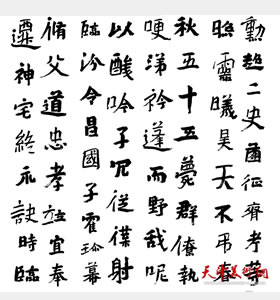 勳超二史爾征齊考蒡
昭靈曦昊天不弔春
秋五十五薨群僚執
哽涕衿蓬而野哉呢
以酸吟子冗従僕射
臨汾令昌國子霍 幕
脩父道忠孝 宜奉
遷神宅終永訣時臨
天天美術網